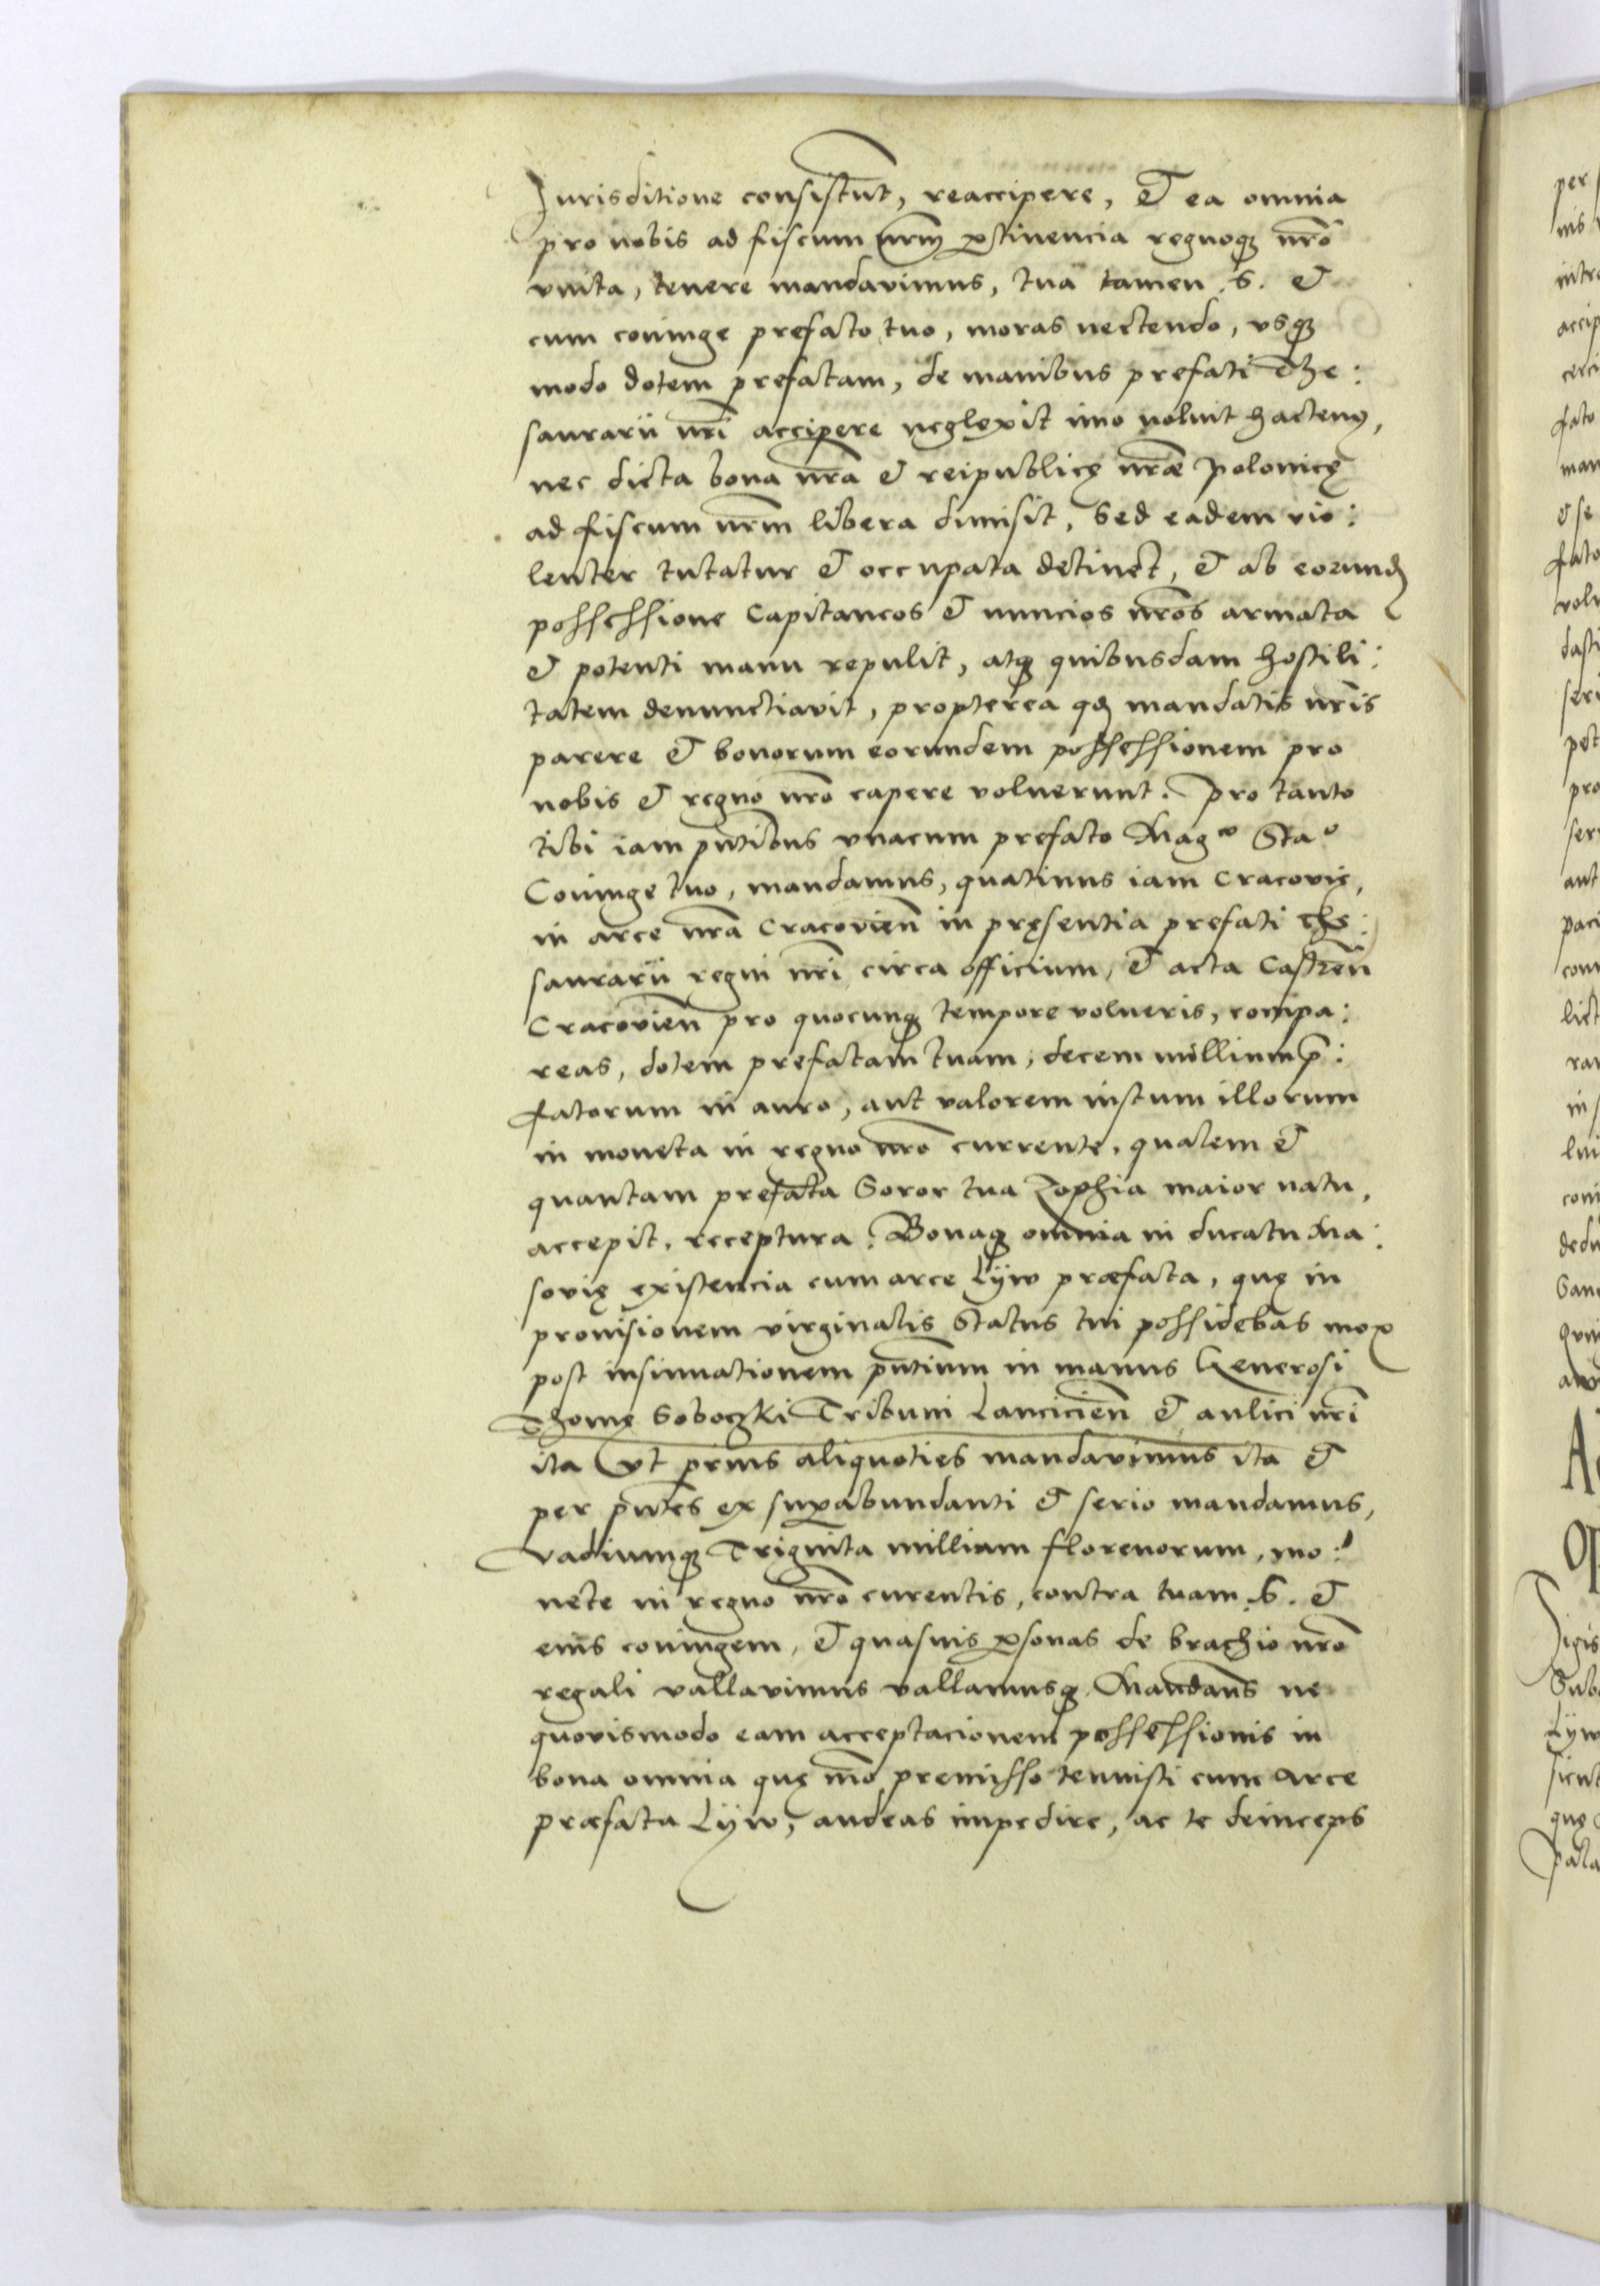 Jurisditione consistunt, reaccipere, Et ea omnia
pro nobis ad fiscum nrm ptinencia regnoq; nro
vnita, tenere mandavimus, tua tamen .S. et
cum coniuge prefato tuo, moras nectendo, vsq;
modo dotem prefatam, de manibus prefati The:
saurarii nri accipere neglexit imo noluit hacten9,
nec dicta bona nra et reipublicę nræ Polonicę
ad fiscum nrm libera dimisit, Sed eadem vio:
lenter tutatur et occupata detinet, et ab eorund
possessione Capitaneos et nuncios nros armata
et potenti manu repulit, atq; quibusdam hostili:
tatem denunctiavit, propterea qd mandatis nris
parere et bonorum eorundem possessionem pro
nobis et regno nro capere voluerunt. Pro tanto
tibi iam pntibus vnacum prefato Magco Stao
Coniuge tuo, mandamus, quatinus iam Cracovię,
in arce nra Cracovien in pręsentia prefati The:
saurarii regni nri circa officium, et acta Castren
Cracovien pro quocunq; tempore volueris, compa:
reas, dotem prefatam tuam, decem millium p:
fatorum in auro, aut valorem iustum illorum
in moneta in regno nro currente, qualem et
quantam prefata Soror tua Zophia maior natu,
accepit, receptura. Bonaq; omnia in ducatu Ma:
sovię existencia cum arce Lijw præfata, quę in
provisionem virginalis Status tui possidebas mox
post insinuationem pntium in manus Generosi
Thomę Soboczki Tribuni Lancicien et aulici nri
ita vt prius aliquoties mandavimus ita et
per pntes ex supabundanti et serio mandamus,
Vadiumq; Triginta millium florenorum, mo:
nete in regno nro curentis, contra tuam .S. et
eius coniugem, et quasuis psonas de brachio nro
regali vallavimus vallamusq; Mandans ne
quovismodo eam acceptacionem possessionis in
bona omnia quę mo premisso tenuisti cum arce
præfata Lijw, audeas impedire, ac te deinceps